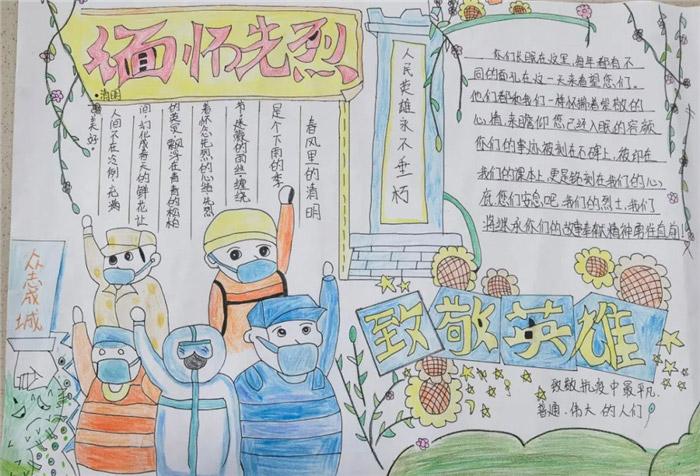 缅怀先烈
·清明
春风里的清明
是个下雨的季
节,迷濛的雨丝,缠绕
着怀念先烈的心绪,先烈
的英灵,飘浮在青青的松柏
间,幻化成春天的鲜花,让
人间不在冷例,充满
美好
人民英雄永不垂朽
你们长眠在这里,每年都有不
同的面孔在这一天来看望您们。
他们都和我们一样怀揣着崇敬的
心情,来瞻仰您已经入眠的容颜
你们的事迹被刻在石碑上,被印在
我们的课本上,更是铭刻在我们的心
底,您们安息吧,我们的烈士,我们
将继承你们的精神勇往直前!
众志成城
致敬英雄
致敬抗疫中最平凡.
普通.伟大的人们